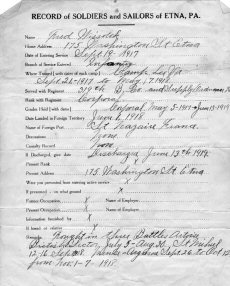 RECORD of SOLDIERS and SAILORS of ETNA, PA.
Name Fred
Home Address 175 Washington St Etna
Date of Entering Service Sept 19 1917
Branch of Service Entered Infantry
Where Trained (with dates of each camp) Camp Lee Va
Sept 21-1917 to May 7, 1918
Served with 319th B. Co and Supply
Rank with Regiment Corporal
Grades Held (with dates) Corporal May 3-1919 June 13-1919
Date Landed in Foreign Territory June 6, 1918
Name of Foreign Port St Nazaire France
Decorations None
Casualty Record None
If Discharged, give date Discharged June 13th 1919
Present Rank X
Present Address 175 Washington St. Etna
Were you prevented from entering active service X
If prevented — in what way X
Former Occupation X Name of Employer
Present Occupation X Name of Employer
Information furnished by X
If based on relative X
Remarks: Fought in three Battles Artois
Sector, July 3-Aug 20, St Mihiel
12-16 Sept Sept 26 to Oct 12
from Nov. 1-7 1918